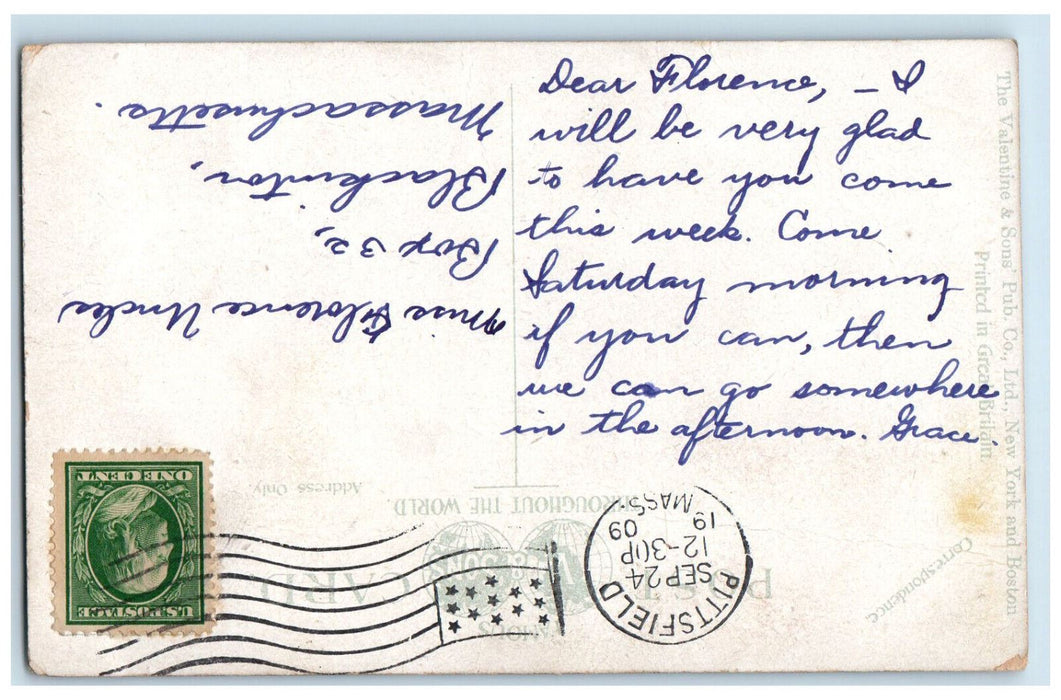 Dear Florence, – I
will be very glad
to have you come
this week. Come
Saturday morning
if you can, then
we can go somewhere
in the afternoon. Grace.
Miss Florence Uncles
Box 32,
Blackinton,
Massachusetts.
The Valentine & Sons' Pub. Co., Ltd., New York and Boston
Printed in Great Britain
Correspondence.
POST CARD
FAMOUS
THROUGHOUT THE WORLD
Address Only.
PITTSFIELD
SEP 24
12-30P
09
19
MASS.
U.S. POSTAGE
ONE CENT